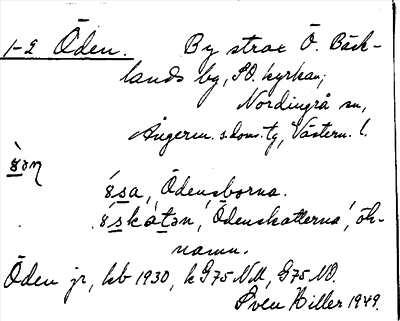 1-2 Öden. By strax Ö. Bäck-
lands by, SO. kyrkan;
Nordingrå sn,
Ångerm. s. doms. tg, Västern. l.
'ösa, Ödensborna.
Ödenskatterna, ök-
namn.
Öden jr, kb 1930, k G75 NV, G75 NO.
Sven Hiller 1949.